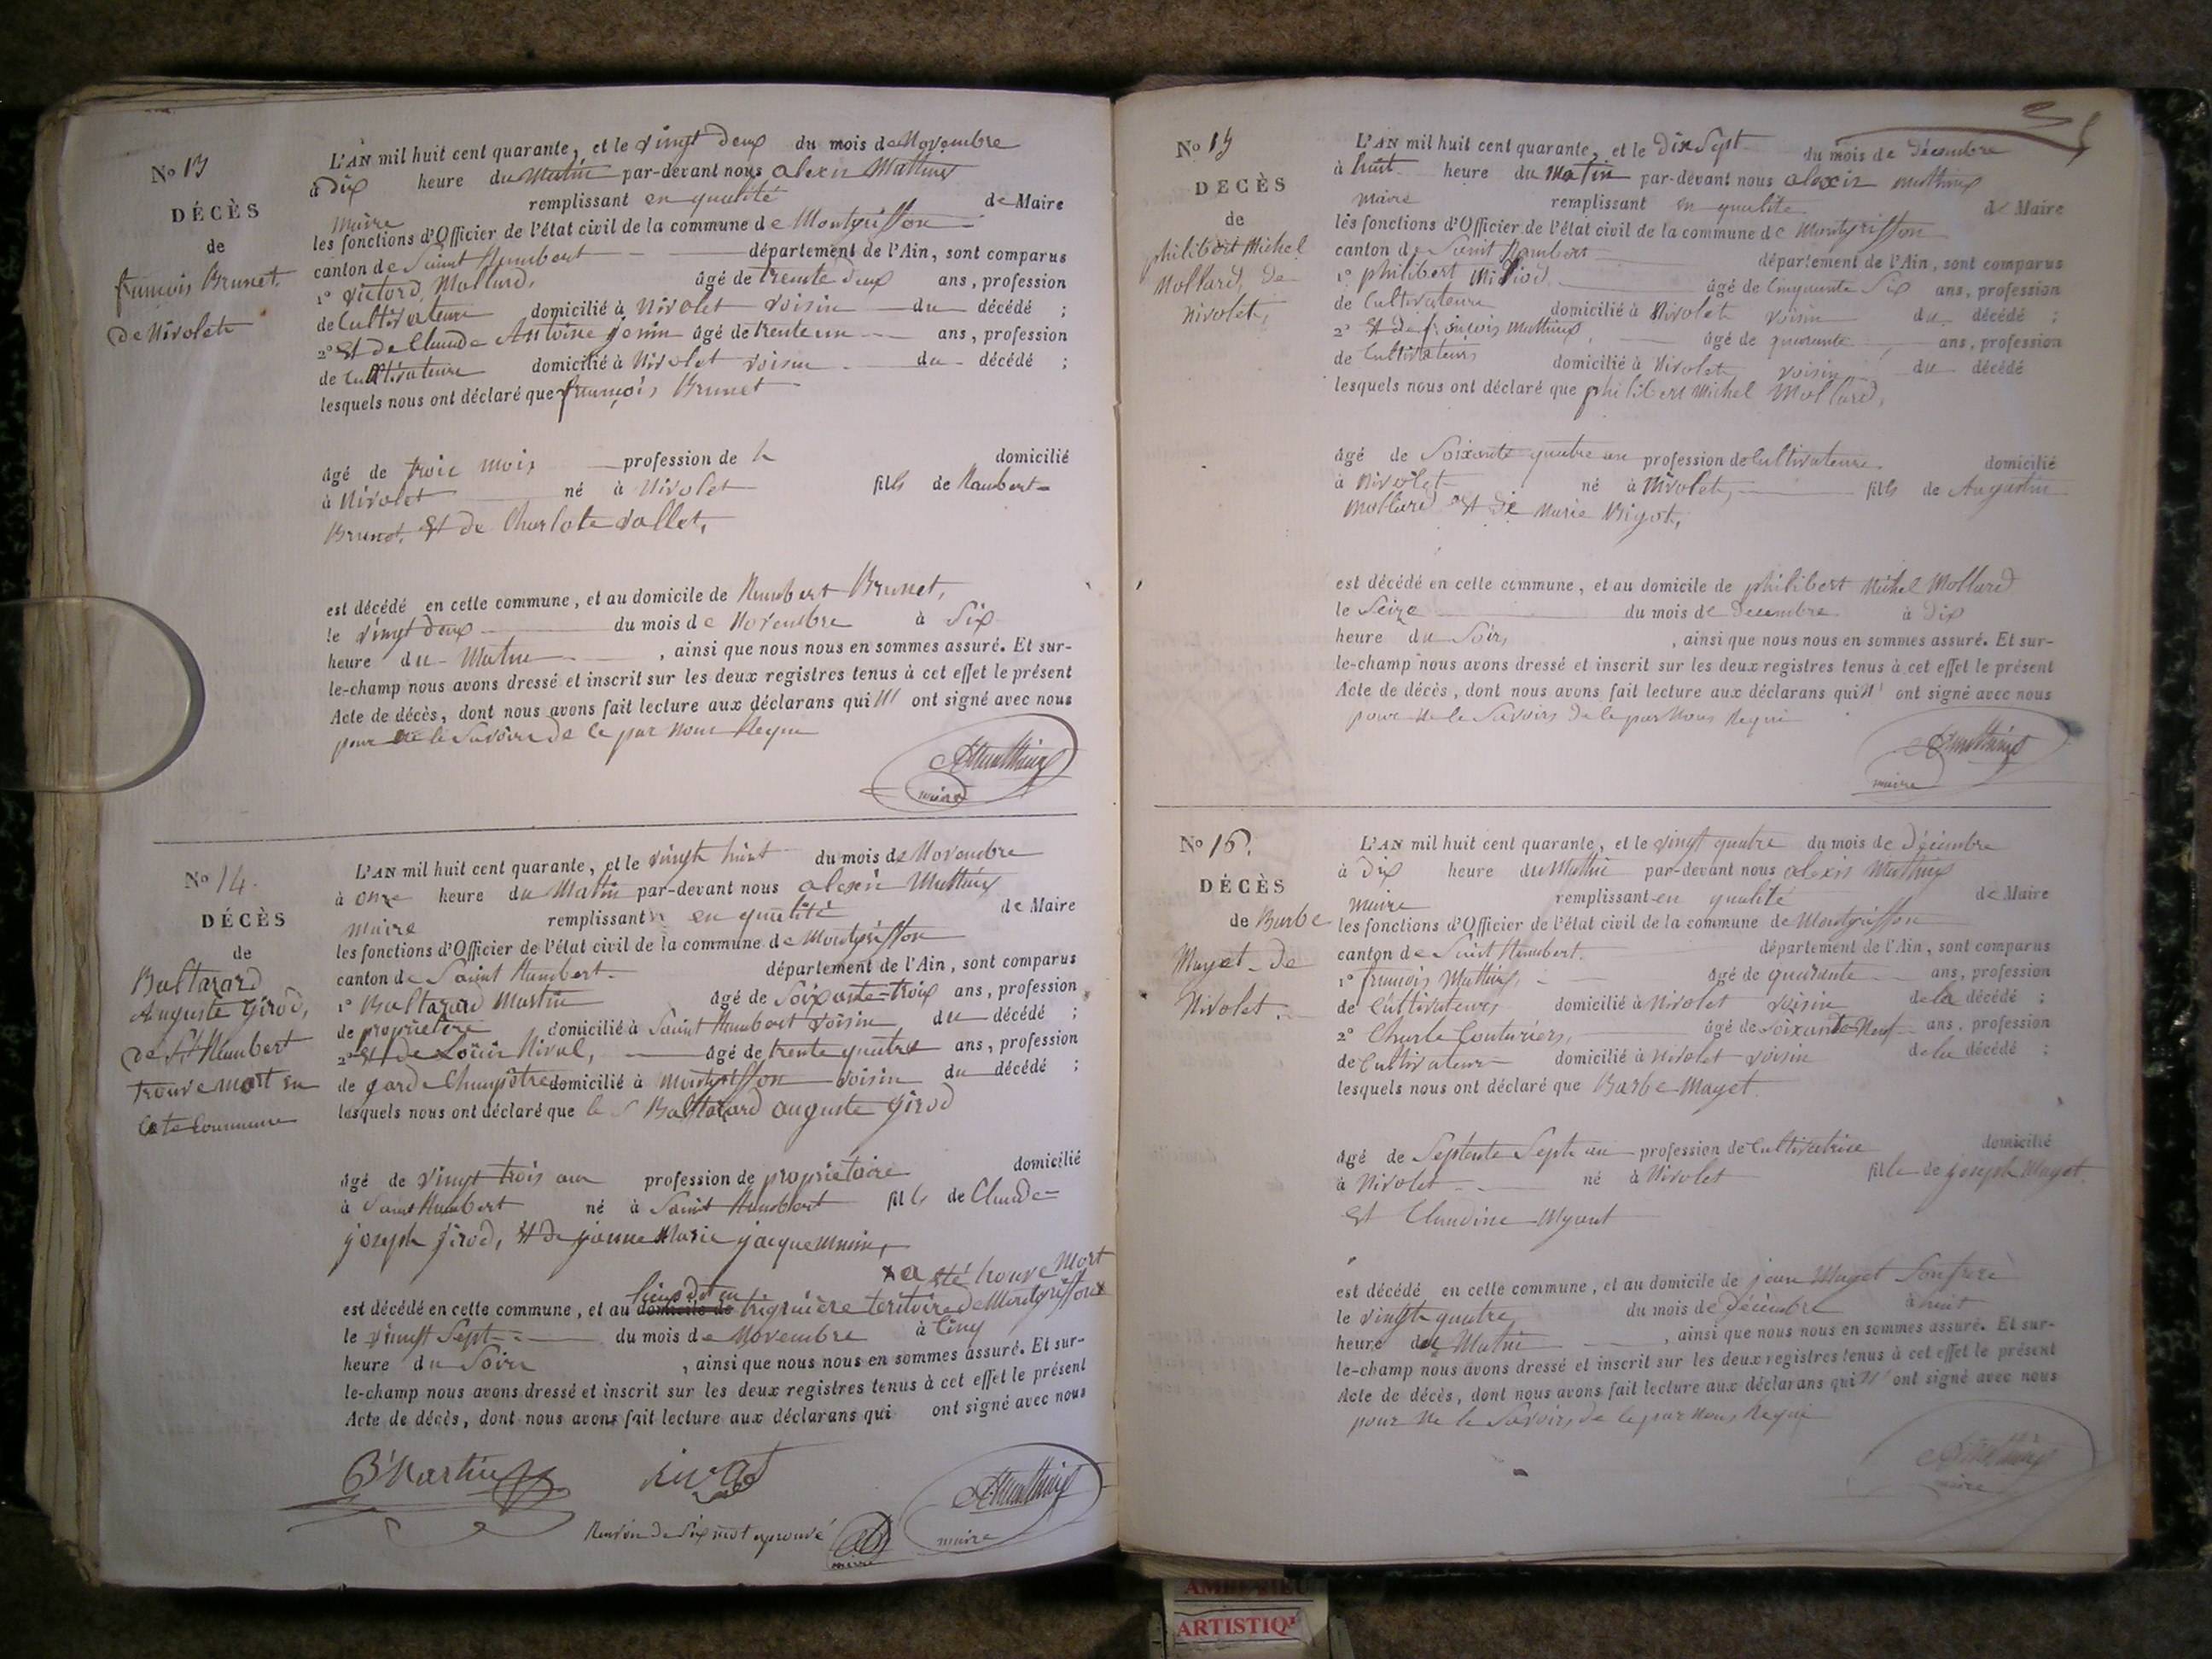 No 13
DÉCÈS
de
francois Brunet.
de Nivolet
L'AN mil huit cent quarante, et le vingt deux du mois de Novembre
à Dix heure du Matin par-devant nous alexis Mathieux
Maire remplissant en qualité de Maire
les fonctions d'Officier de l'état civil de la commune de Montgriffon
canton de Saint Rambert département de l'Ain, sont comparus
1º Victord Mollard, âgé de trente deux ans, profession
de Cultivateur domicilié à Nivolet voisin du décédé ;
2º Et de Claude Antoine âgé de trente un ans, profession
de Cultivateure domicilié à Nivolet voisin du décédé ;
lesquels nous ont déclaré que françois Brunet
âgé de trois mois profession de domicilié
à Nivolet né à Nivolet fils de Rambert
Brunet. Et de Charlote vallet,
est décédé en cette commune, et au domicile de Rambert Brunet,
le vingt deux du mois de Novembre à Six
heure du Matin , ainsi que nous nous en sommes assuré. Et sur-
le-champ nous avons dressé et inscrit sur les deux registres tenus à cet effet le présent
Acte de décès, dont nous avons fait lecture aux déclarans qui n' ont signé avec nous
pour ne le Savoire de ce par Nous Requi
AMathieux
maire
No 14.
DÉCÈS
de
Baltazard
Auguste Girod,
de St Rambert
trouve mort en
cete Commune
L'AN mil huit cent quarante, et le vingt huit du mois de Novembre
à onze heure du Matin par-devant nous alexis Mathieux
maire remplissant en qualité de Maire
les fonctions d'Officier de l'état civil de la commune de Montgriffon
canton de Saint Rambert département de l'Ain, sont comparus
1º Baltazard Martin âgé de Soixante-trois ans, profession
de propriétere domicilié à Saint Rambert voisin du décédé ;
2º Et de Louis Rival, âgé de trente quatre ans, profession
de gard Champêtre domicilié à Montgriffon voisin du décédé ;
lesquels nous ont déclaré que le S Balthazard auguste girod
âgé de vingt trois an profession de propriétaire domicilié
à Saint Rambert né à Saint Rambert fils de Claude
joseph girod, Et de jeanne Marie jacquemain,
x a été trouvé Mort
lieu dit en
est décédé en cette commune, et au domicile de teritoire de Montgriffon x
le vingt Sept du mois de Novembre à Cinq
heure du Soire , ainsi que nous nous en sommes assuré. Et sur-
le-champ nous avons dressé et inscrit sur les deux registres tenus à cet effet le présent
Acte de décès, dont nous avons fait lecture aux déclarans qui ont signé avec nous
B Martin Rival AMathieux
maire
Renvoi de Six mot aprouvé
maire
No 15
DÉCÈS
de
philibert Michel
Mollard, de
Nivolet,
L'AN mil huit cent quarante, et le Dix Sept du mois de Décembre
à huit heure du Matin par-devant nous alexis mathieux
maire remplissant en qualité de Maire
les fonctions d'Officier de l'état civil de la commune de Montgriffon
canton de Saint Rambert département de l'Ain, sont comparus
1º philibert Milliod âgé de Cinquante Six ans, profession
de Cultivateure domicilié à Nivolet voisin du décédé ;
2º Et de francois Mathieux, âgé de quarante ans, profession
de Cultivateurs domicilié à Nivolet voisin du décédé
lesquels nous ont déclaré que philibert Michel Mollard,
âgé de Soixante quatre an profession de Cultivateure domicilié
à Nivolet né à Nivolet, fils de Augustin
Mollard Et de Marie Bigot,
est décédé en cette commune, et au domicile de philibert Michel Mollard
le Seize du mois de Decembre à Dix
heure du Soir, , ainsi que nous nous en sommes assuré. Et sur-
le-champ nous avons dressé et inscrit sur les deux registres tenus à cet effet le présent
Acte de décès, dont nous avons fait lecture aux déclarans qui n' ont signé avec nous
pour ne le Savoirs de ce par Nous Requi
AMathieux
maire
No 16.
DÉCÈS
de Barbe
Mayet de
Nivolet.
L'AN mil huit cent quarante, et le vingt quatre du mois de Décembre
à Dix heure du Mathin par-devant nous alexis Mathieux
Maire remplissant en qualité de Maire
les fonctions d'Officier de l'état civil de la commune de Montgriffon
canton de Saint Rambert. département de l'Ain, sont comparus
1º francois Mathieux, âgé de quarante ans, profession
de Cultivateurs domicilié à Nivolet voisin de la décédé ;
2º Charle Couturiers, âgé de Soixante Neuf ans, profession
de Cultivateur domicilié à Nivolet voisin de la décédé ;
lesquels nous ont déclaré que Barbe Mayet.
âgé de Septente Sept an profession de Cultivatrice domicilié
à Nivolet né à Nivolet fille de joseph Mayet.
Et Claudine
est décédé en cette commune, et au domicile de jean Mayet Son frere
le vingt quatre du mois de Décembre à huit
heure du Matin , ainsi que nous nous en sommes assuré. Et sur-
le-champ nous avons dressé et inscrit sur les deux registres tenus à cet effet le présent
Acte de décès, dont nous avons fait lecture aux déclarans qui n' ont signé avec nous
pour ne le Savoirs de ce par Nous Requi
AMathieux
maire
AMBERIEU
ARTISTIQU